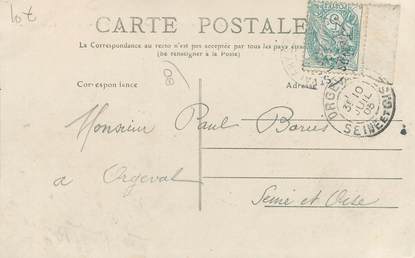 lot
CARTE POSTALE
La Correspondance au recto n'est pas acceptée par tous les pays étrangers
(Se renseigner à la Poste)
80
Correspondance
Adresse
ORGEVAL
10
JUIL
05
SEINE ET OISE
Monsieur Paul
a Orgeval
Seine et Oise